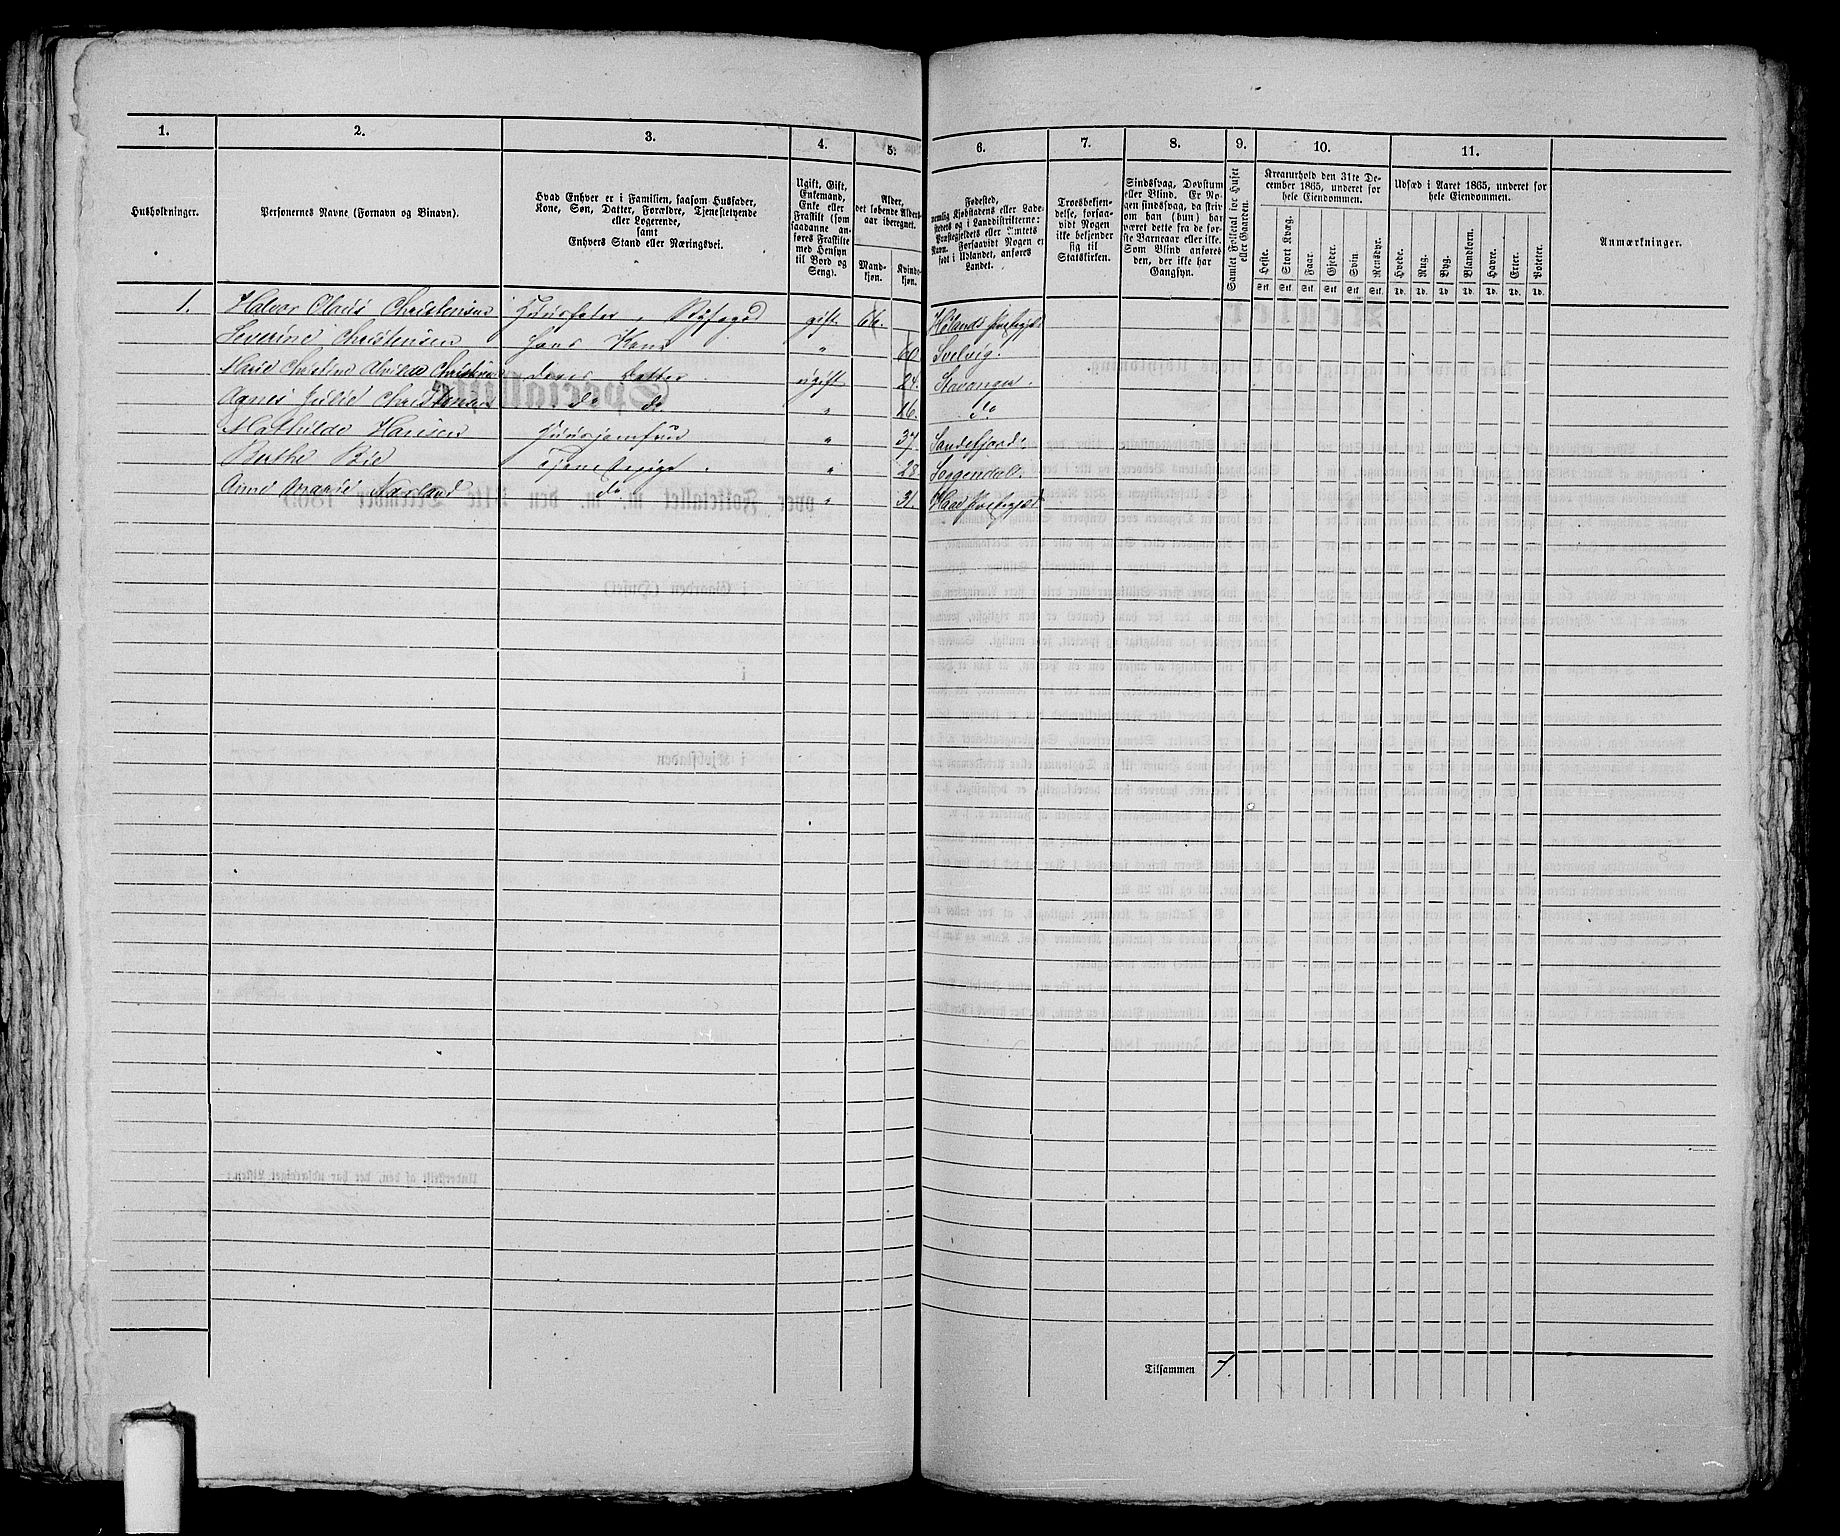 1. 2. 3. 4. 5. 6. 7. 8. 9. 10. 11.
Husholdninger.
Personernes Navne (Fornavn og Binavn).
Hvad Enhver er i Familien, saasom Husfader,
Kone, Søn, Datter, Forældre, Tjenestetyende
eller Logerende,
samt
Enhvers Stand eller Næringsvei.
Ugift, Gift,
Enkemand,
Enke eller
Fraskilt (som
saadanne an-
føres Fraskilte
med Hensyn
til Bord og
Seng).
Alder,
det løbende Alders-
aar iberegnet.
Mand-
kjøn.
Kvind-
kjøn.
Fødested,
nemlig Kjøbstadens eller Lade-
stedets og i Landdistrikterne:
Præstegjeldets eller Amtets
Navn. Forsaavidt Nogen er
født i Udlandet, anføres
Landet.
Troesbekjen-
delse, forsaa-
vidt Nogen
ikke bekjender
sig til
Statskirken.
Sindssvag, Døvstum
eller Blind. Er No-
gen sindssvag, da skriv
om han (hun) har
været dette fra de før-
ste Barneaar eller ikke.
Som Blind anføres
den, der ikke har
Gangsyn.
Samlet Folketal for Huset
eller Gaarden.
Kreaturhold den 31te De-
cember 1865, underet for
hele Eiendommen.
Heste. Stort Kvæg. Faar. Gjeder. Svin. Rensdyr.
Stk. Stk. Stk. Stk. Stk. Stk.
Udsæd i Aaret 1865, underet for
hele Eiendommen.
Hvede. Rug. Byg. Blandkorn. Havre. Erter. Poteter.
Td. Td. Td. Td. Td. Td. Td.
Anmærkninger.
1. Halvor Claus Christensen Huusfader, Byfoged gift 66. Hølands Præstegjeld
Severine Christensen hans Kone " 60 Svelvig.
Marie Christine Christensen deres Datter ugift 24. Stavanger.
Agnes Julie Christensen do do " 16. do
Mathilde Hansen Huusjomfrue " 37 Sandefjord.
Berthe Bie Tjenestepige. " 28 Soggendal.
Anne Marie Nærland do. " 31. Haa Præstegjeld
Tilsammen 7.